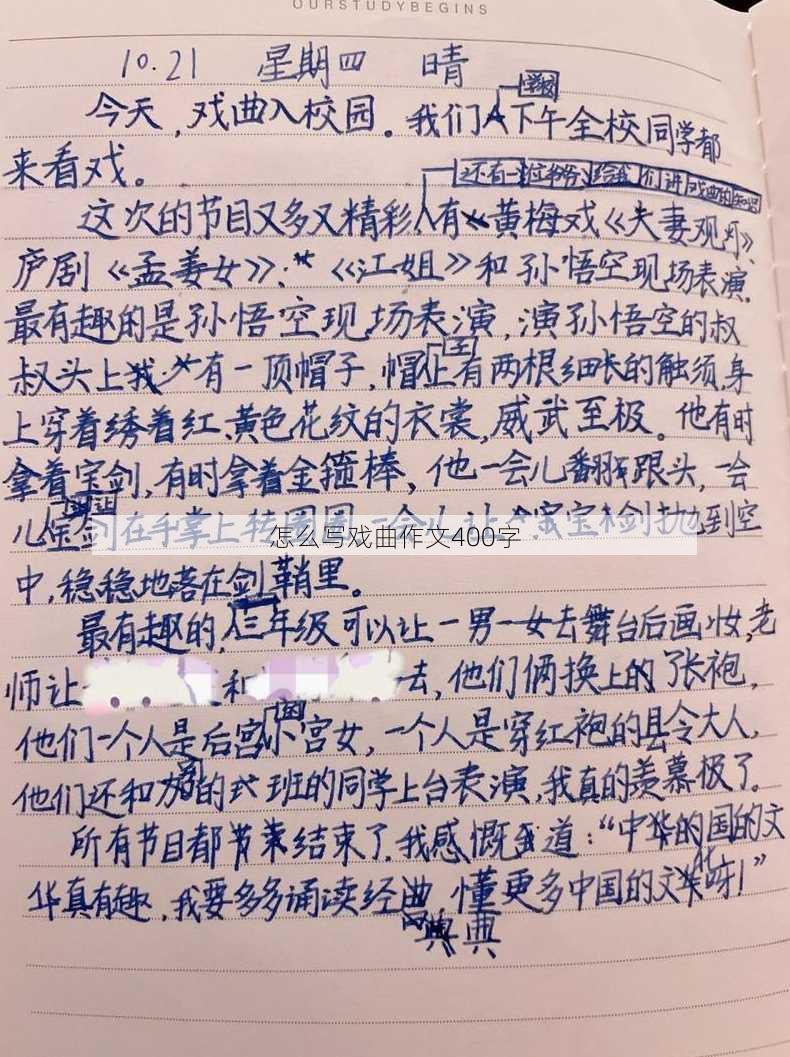 OURSTUDYBEGINS
10.21 星期四 晴
学校
今天,戏曲入校园。我们下午全校同学都
来看戏。
还有一位爷爷给我们讲戏曲的知识
这次的节目又多又精彩,有黄梅戏《夫妻观灯》、
庐剧《孟姜女》、《江姐》和孙悟空现场表演。
最有趣的是孙悟空现场表演,演孙悟空的叔
叔头上有一顶帽子,帽上有两根细长的触须,身
上穿着绣着红、黄色花纹的衣裳,威武至极。他有时
拿着宝剑,有时拿着金箍棒,他一会儿翻跟头,一会
儿让宝剑在手掌上转圈圈,一会儿让宝剑抛到空
怎么写戏曲作文400字
中,稳稳地落在剑鞘里。
最有趣的,三年级可以让一男一女去舞台后画妆,老
师让 和 去,他们俩换上的了长袍,
他们一个人是后宫小宫女,一个人是穿红袍的县令大人,
他们还和 的 班的同学上台表演,我真的羡慕极了。
所有节目都结束了,我感慨道:“中华的国的文
华真有趣,我要多多诵读经典,懂更多中国的文化呀!”
典